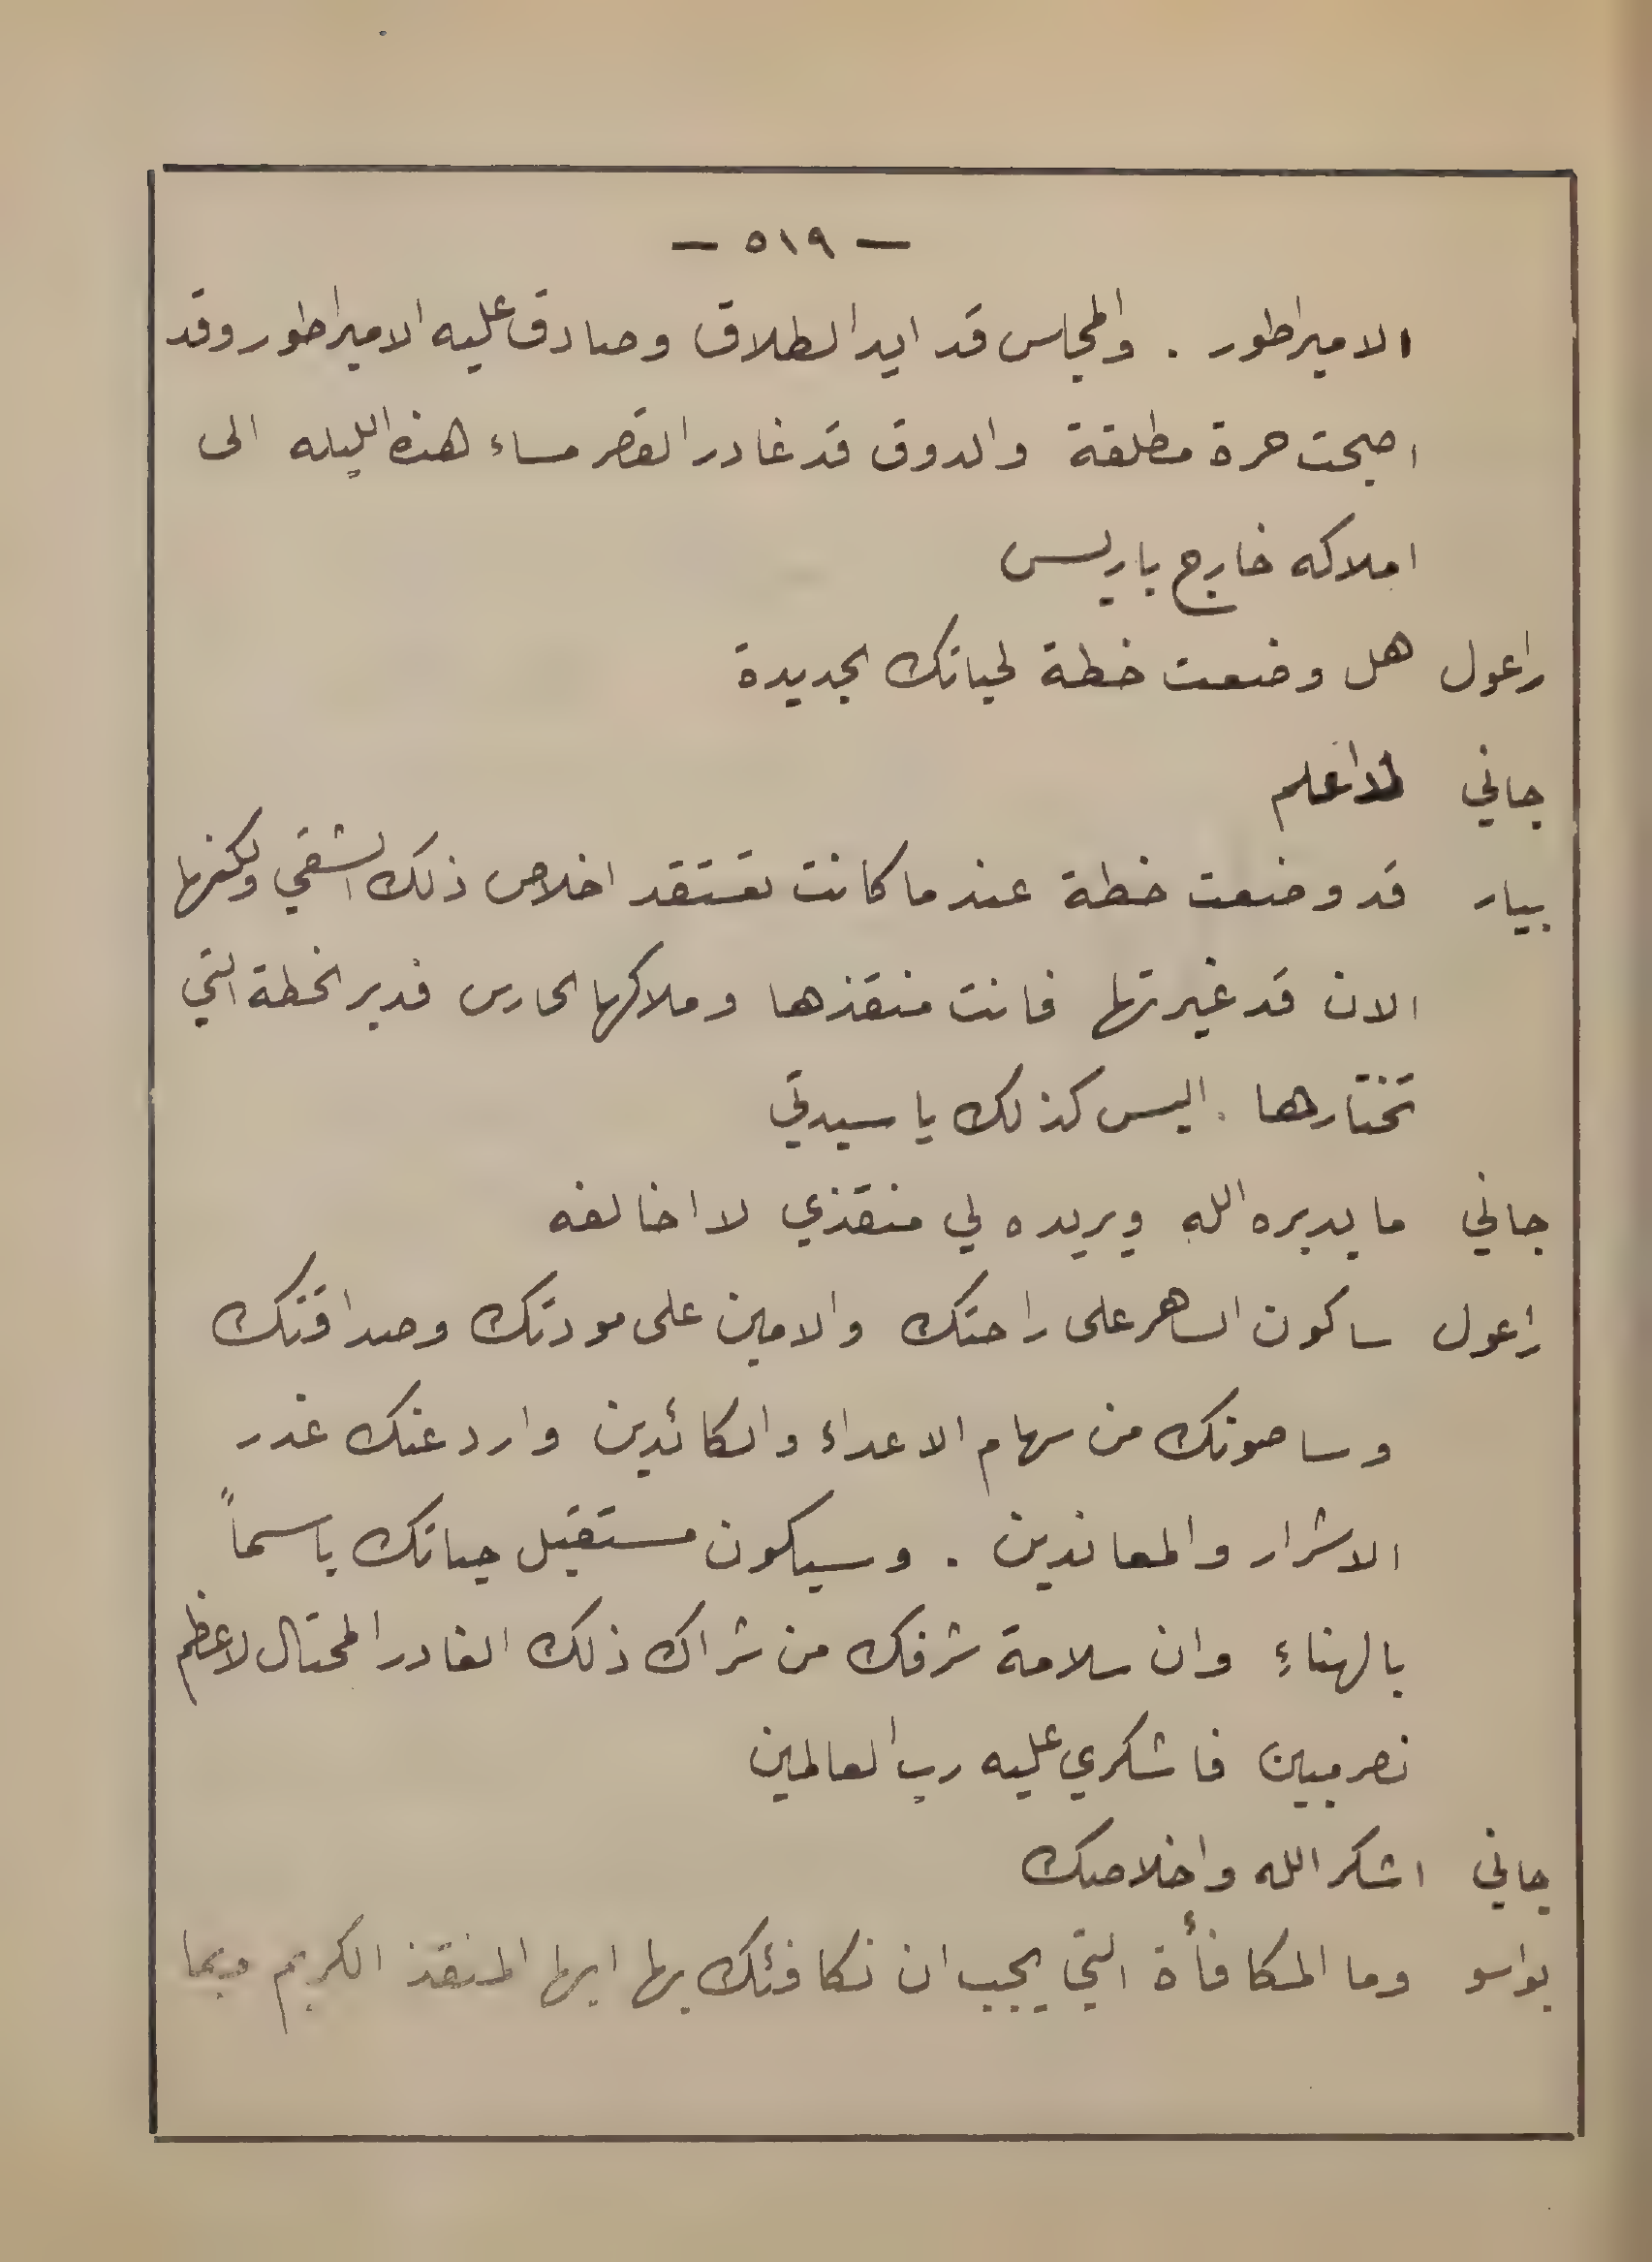 — ٥١٩ —
الامبراطور . والمجلس قد ايد الطلاق وصادق عليه الامبراطور وقد
اصبحت حرة مطلقة والدوق قد غادر القصر مساء هذه الليله الى
املاكه خارج باريس
راعول هل وضعت خطة لحياتك الجديدة
جاني لا اعلم
بيار قد وضعت خطة عندما كانت تعتقد اخلاص ذلك الشقي ولكنها
الان قد غيرتها فانت منقذها وملاكها الحارس فدبر الخطة التي
تختارها . اليس كذلك يا سيدتي
جاني ما يدبره الله ويريده لي منقذي لا اخالفه
راعول ساكون الساهر على راحتك والامين على مودتك وصداقتك
وساصونك من سهام الاعداء والكائدين وارد عنك غدر
الاشرار والمعاندين . وسيكون مستقبل حياتك باسماً
بالهناءِ وان سلامة شرفك من شراك ذلك الغادر المحتال لاعظم
نصر مبين فاشكري عليه رب العالمين
جاني اشكر الله واخلاصك
بواسو وما المكافأة التي يجب ان نكافئك بها ايها المنقذ الكريم وبما